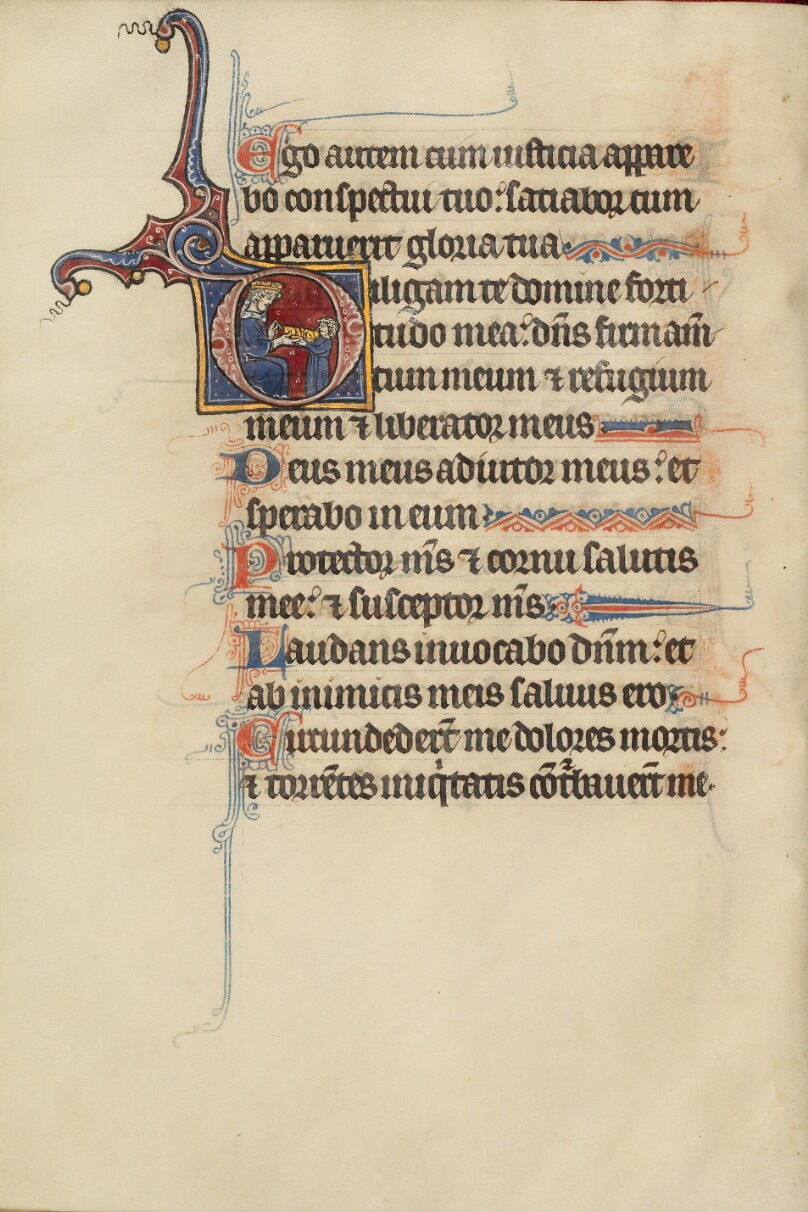 Ego autem cum iusticia appare
bo conspectui tuo: satiabor cum
apparuerit gloria tua
Diligam te domine forti
tudo mea: dn̄s firmam̄
tum meum ⁊ refugium
meum ⁊ liberator meus
Deus meus adiutor meus: et
sperabo in eum
Protector m̄s ⁊ cornu salutis
mee: ⁊ susceptor m̄s
Laudans inuocabo dn̄m: et
ab inimicis meis saluus ero
Circundeder̄t me dolores mortis:
⁊ torrētes iniqͥtatis cōt͛bauer̄t me.